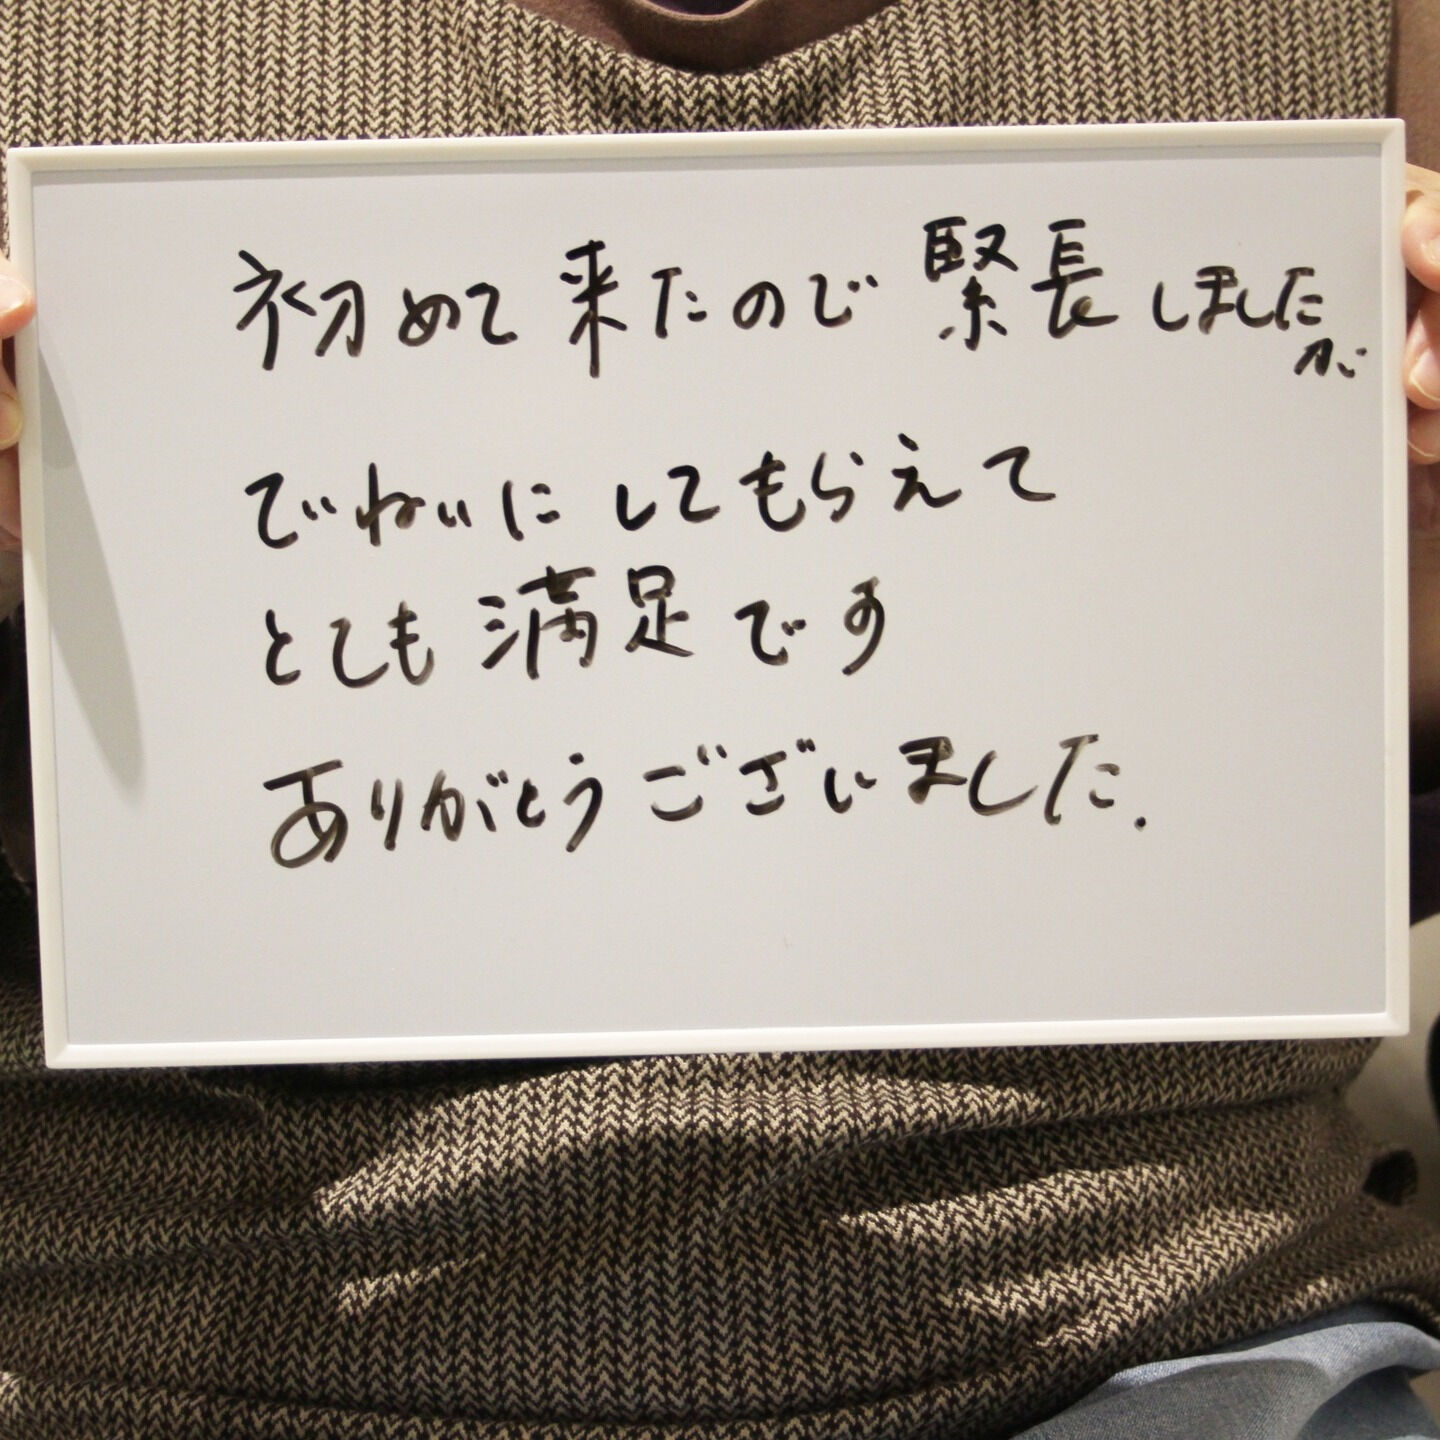 初めて来たので緊長しましたが
ていねいにしてもらえて
とても満足です
ありがとうございました.